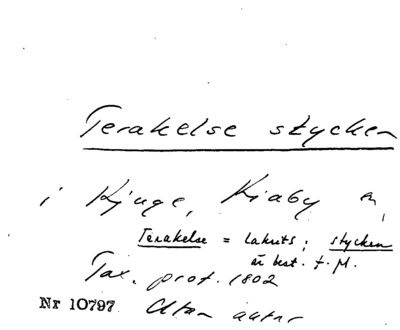 Terakelse stycken
i Kjuge, Kiaby sn,
Terakelse = Lakrits; stycken
är best. f. pl.
Tax. prot. 1802
Nr 10797 Utan autor